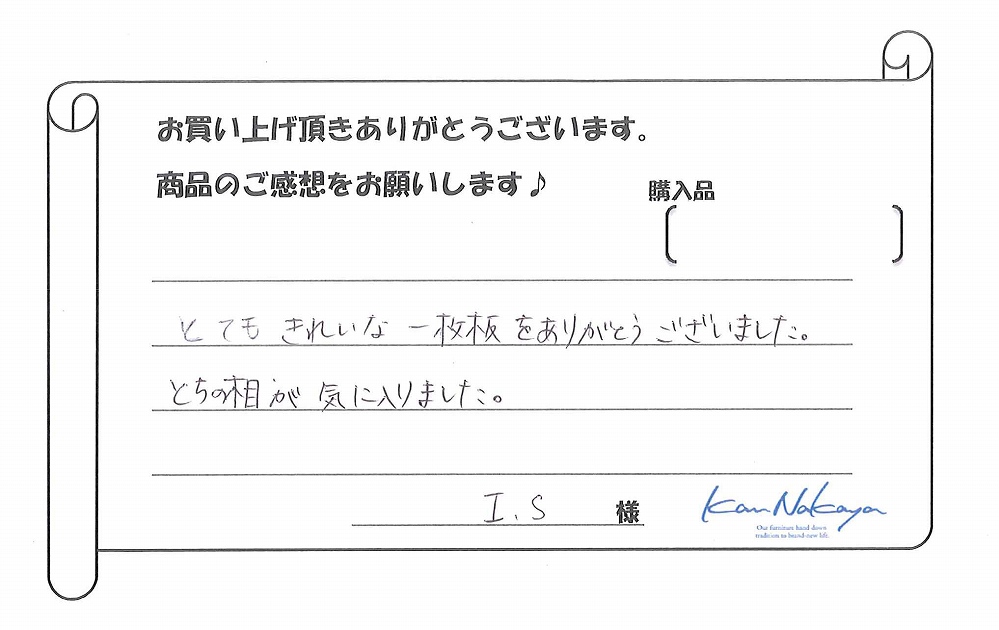 お買い上げ頂きありがとうございます。
商品のご感想をお願いします♪
購入品
とてもきれいな一枚板をありがとうございました。
とちの相が気に入りました。
I.S 様
Kan Nakaya
Our furniture hand down
tradition to brand-new life.